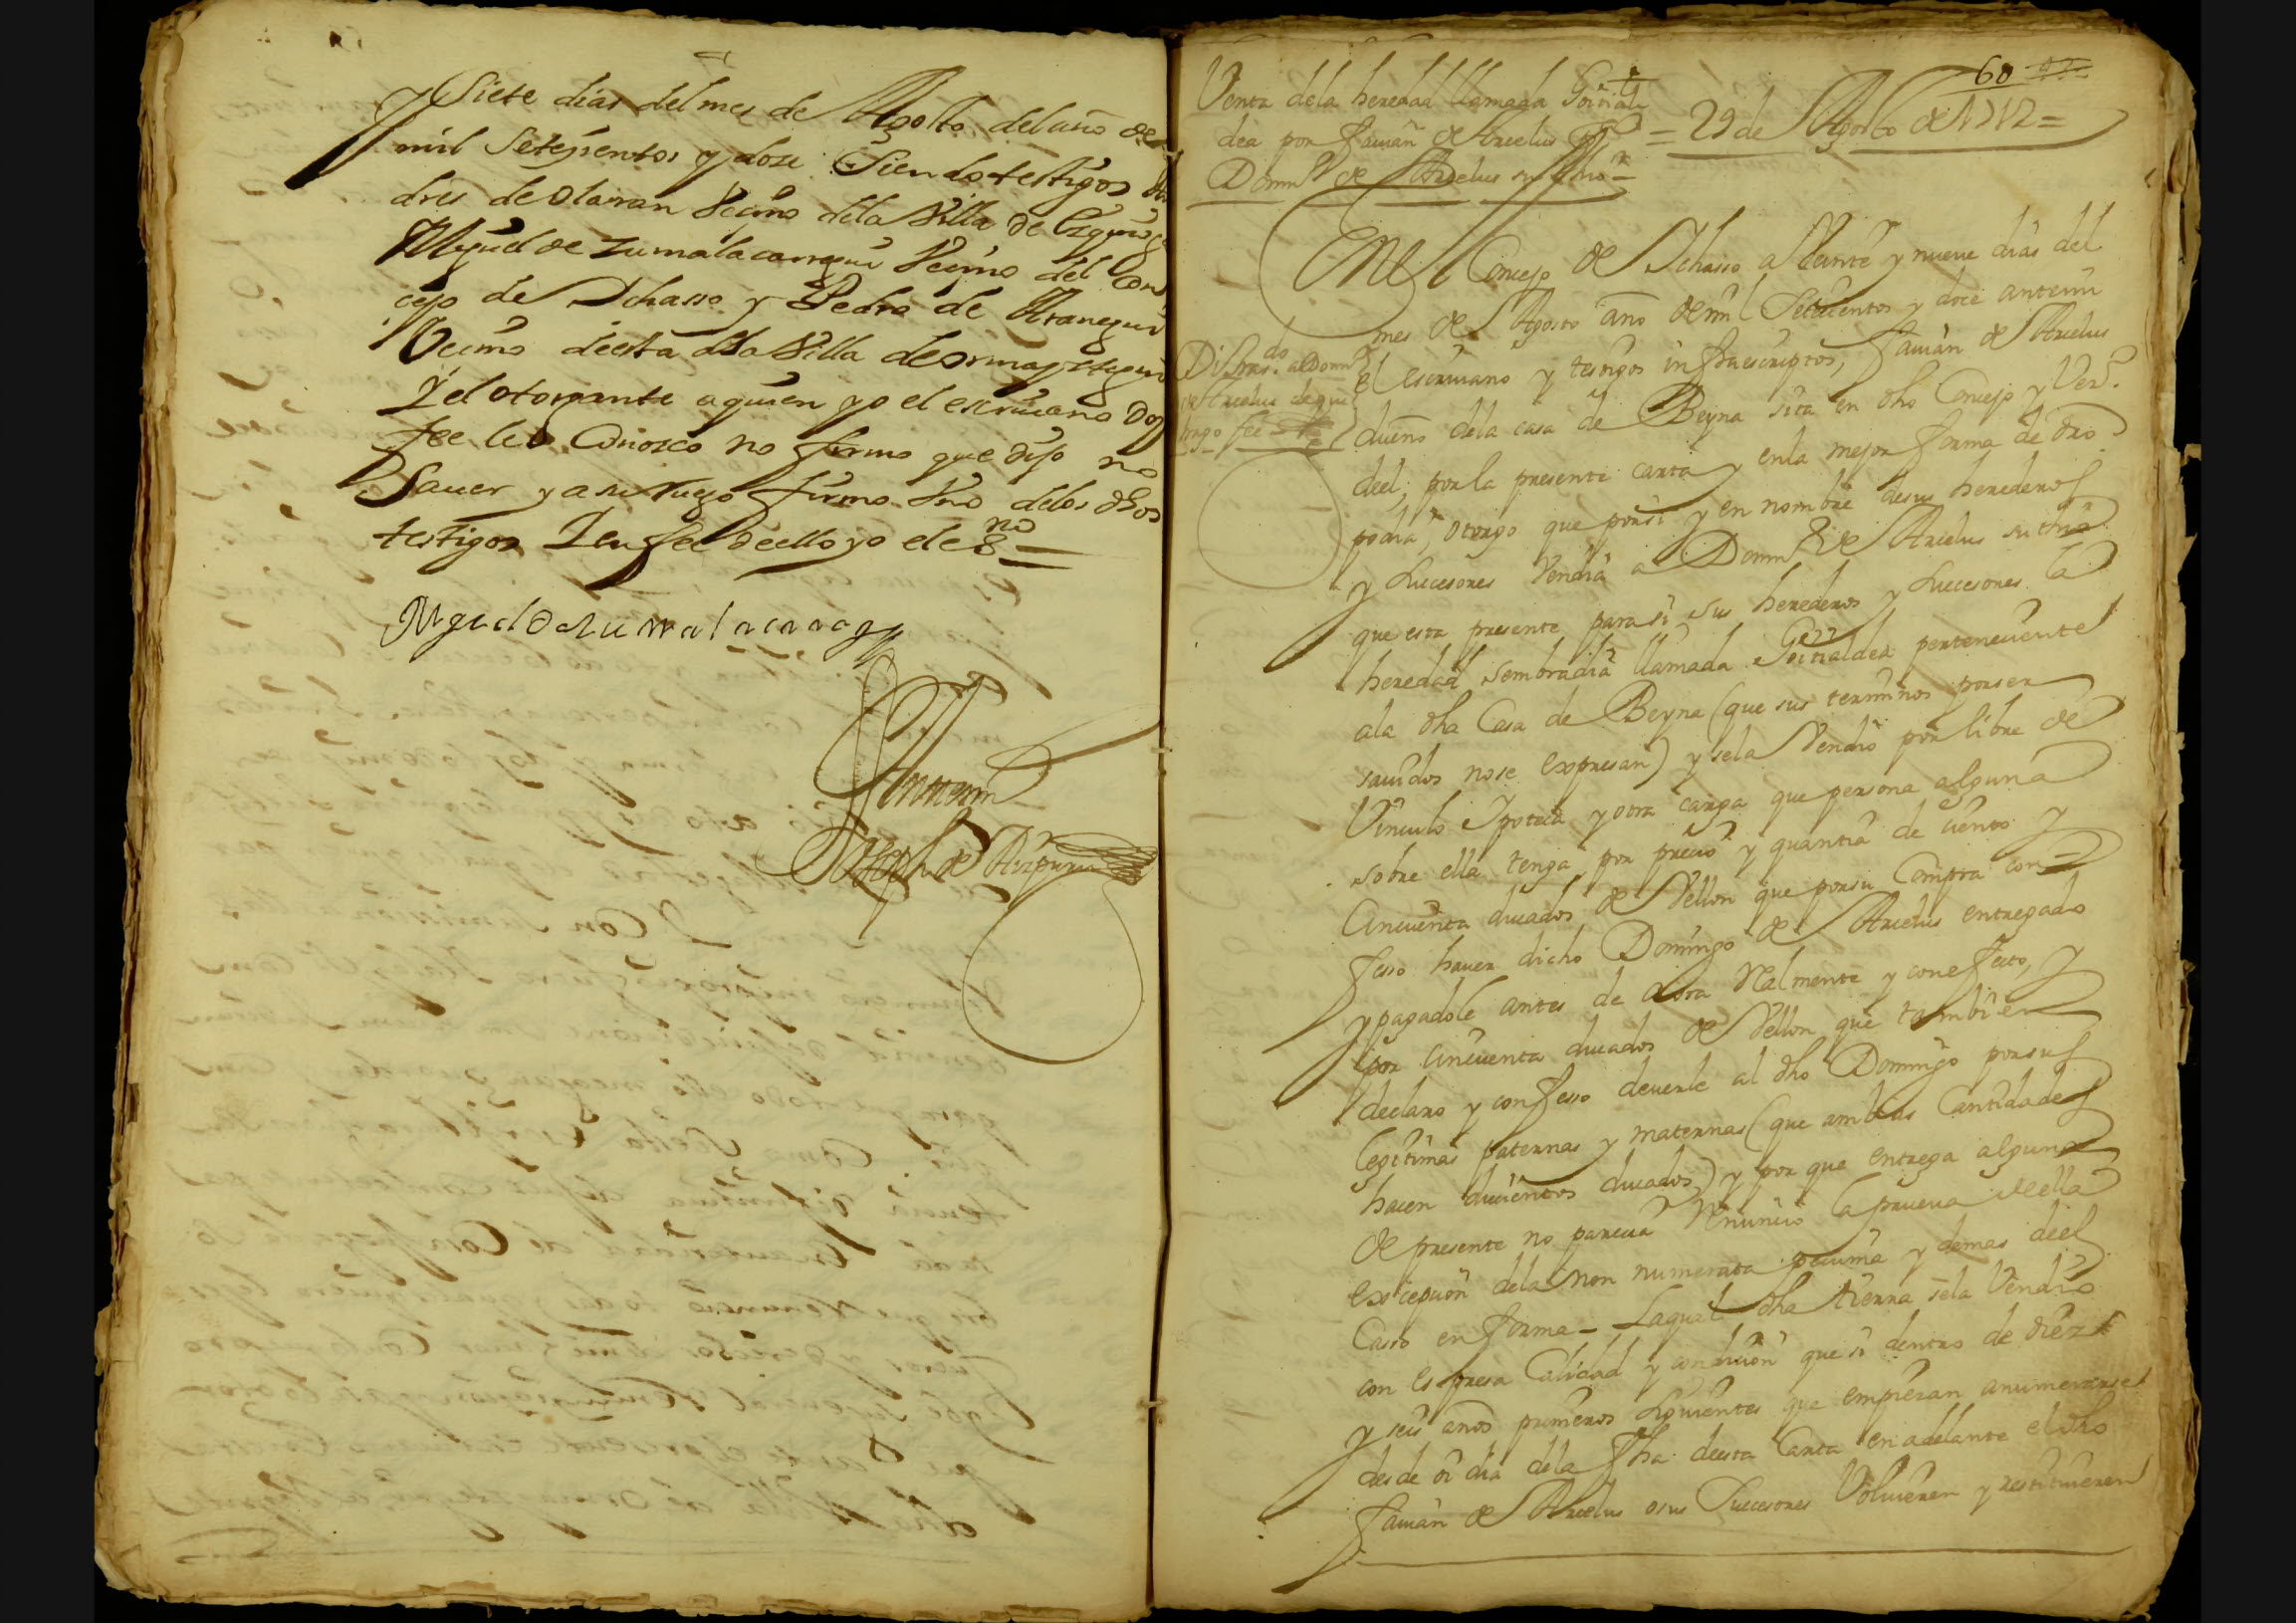 y Siete dias del mes de Agosto del año de
mil Setesientos y dose Siendo testigos An
dres de Olaran Veçino dela Villa de
Miguel de Zumalacarregui Veçino del Con
cejo de Ichasso y Pedro de Aranegui
Veçino deesta dha Villa de Ormaystegui
y el otorgante aquien yo el escriuano Doy
fee le Conosco no firmo que dijo no
Sauer y a su ruego firmo Vno delos dhos
testigos I en fee deello yo el es.no =
Migel de Zumalacaragy
Ante mi
Joseph de Aizpuru
60
Venta dela heredad llamada Goitial
dea por Fauian de Arcelus
Domin.o de Arcelus su thio =
= 29 de Agosto de 1712 =
EN el Concejo de Ichasso a Veinte y nueve dias del
mes de Agosto año de mil Setecientos y doce antemi
el escriuano y testigos infraescriptos, Fauian de Arcelus
dueño dela casa de Beyna sita en dho Concejo y Vez.o
deel, por la presente carta y enla mejor forma de dro
podia, otorgo que porsi y en nombre desus herederos
y sucesores Vendia a Domin.o de Arcelus su thio
que esta presente parasi sus herederos y sucesores la
heredad sembradia llamada Goitialdea perteneciente
ala dha Casa de Beyna (que sus terminos porser
sauidos nose expresan) y sela Vendio por libre de
Vinculo Ipoteca y otra carga que persona alguna
sobre ella tenga por precio y quantia de ciento y
Cincuenta ducados de Vellon que porsu Compra con=
fesso hauer dicho Domingo de Arcelus entregado
y pagadole antes de aora Realmente y conefecto, y
por cincuenta ducados de Vellon que tambien
declaro y confesso deuerle al dho Domingo porsus
legitimas paternas y maternas (que ambas Cantidades
hacen ducientos ducados) y por que entrega alguna
de presente no parecia Renuncio la prueua deella
excepcion dela non numerata pecunia y demas deel
Casso en forma = Laqual dha tierra sela Vendio
con espresa Calidad y condicion que si dentro de diez
y seis años primeros siguientes que empiezan anumerarse
desde oi dia dela fha deesta Carta en adelante el dho
Fauian de Arcelus o sus Succesores Voluieren y restituieren
Di tras.do al Domin.o
de Arcelus de que
hago fee =